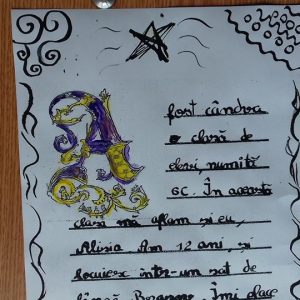 A
fost cândva
o clasă de
elevi, numită
6C. În această
clasă mă aflam și eu,
Alisia Am 12 ani, și
locuiesc într-un sat de
lângă Brașov. Îmi place